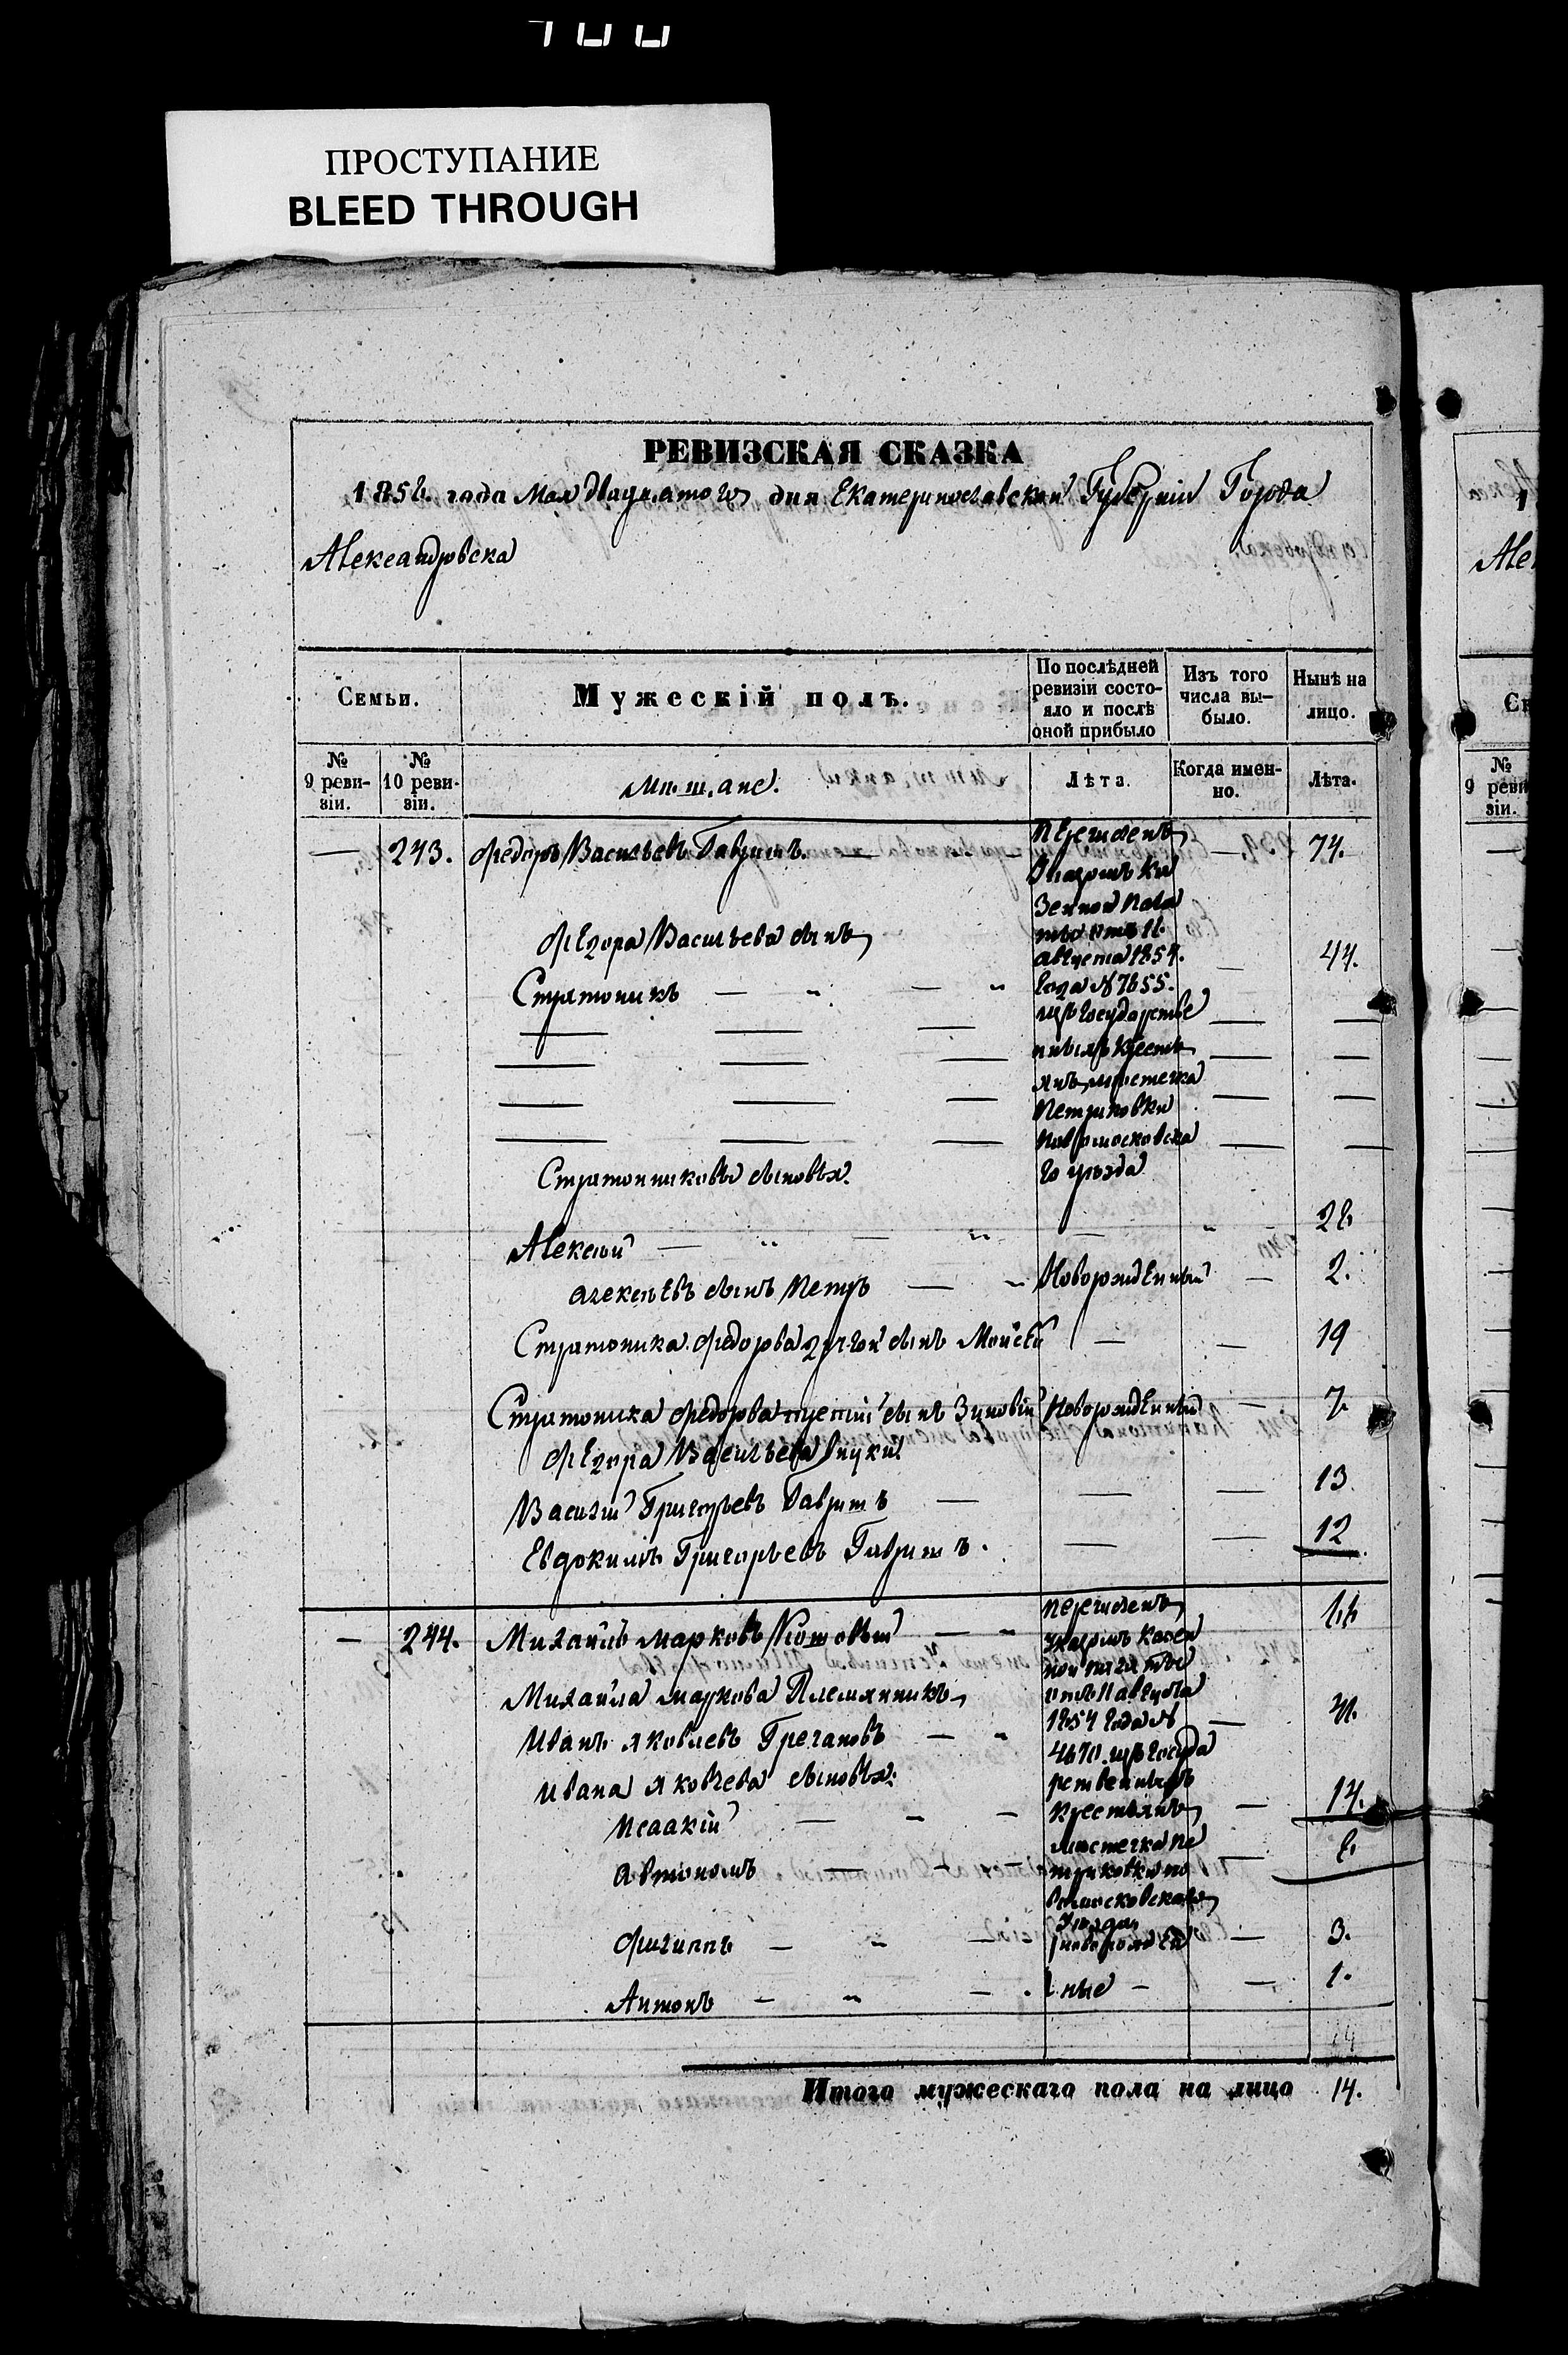 ПРОСТУПАНИЕ
BLEED THROUGH
РЕВИЗСКАЯ СКАЗКА
1858. года Мая двадцатого дня Екатеринославской Губерніи Города
Александровска
Семьи.
Мужескій полъ.
По послѣдней ревизіи состояло и послѣ оной прибыло
Изъ того числа выбыло.
Нынѣ на лицо.
№ 9 ревизіи.
№ 10 ревизіи.
Мѣщане.
Лѣта.
Когда именно.
Лѣта.
— 243. Федоръ Васильевъ Гавришъ. — — 74.
Перечисленъ
Указомъ Ка
зенной Пала
ты отъ 11.
августа 1854.
года № 7655.
изъ государстве
нныхъ крестъ
янъ мѣстечка
Петриковки
Новомосковска
го уѣзда
Федора Васильева сынъ
Стратоникъ — „ — „ — 44.
Стратониковы сыновья.
Алексей — „ — „ — „ 28
Алексѣевъ сынъ Петръ — „ Новорожденный — 2.
Стратоника Федорова другой сынъ Моисей — — 19
Стратоника Федорова третій сынъ Зиновій Новорожденный — 7.
Федора Васильева внуки
Василій Григорьевъ Гавришъ — — — 13.
Евдокимъ Григорьевъ Гавришъ. — — 12
— 244. Михаилъ Марковъ — „
перечисленъ
указомъ казен
ной палаты
отъ 11 августа
1854 года №
4670. изъ госуда
рственныхъ
крестьянъ
мѣстечка Пе
триковки но
вомосковскаго
уѣзда
новорожде
нные —
Михаила Маркова Племянникъ
Иванъ Яковлевъ Гречановъ — „ —
Ивана Яковлева сыновья:
Исаакій — — — — 14.
Автономъ — — — —
Филиппъ — „ — — 3.
Антонъ — „ — — 1.
14
Итого мужескаго пола на лицо 14.